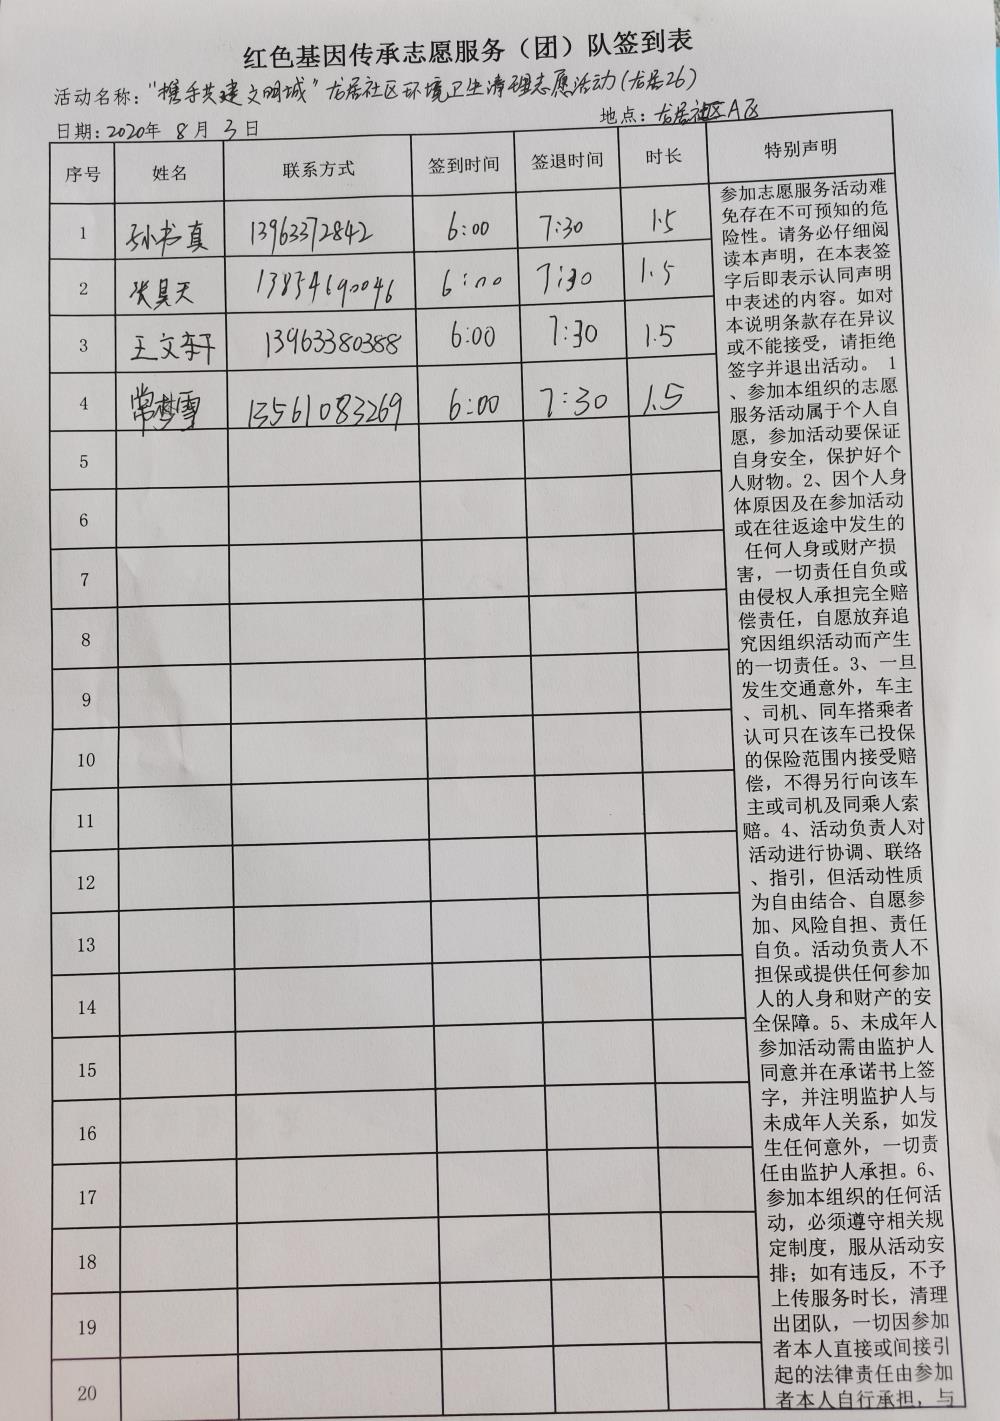 红色基因传承志愿服务（团）队签到表
活动名称：“携手共建文明城”龙居社区环境卫生清理志愿活动（龙居26）
日期：2020年 8月 3日
地点：龙居社区A区
序号 姓名 联系方式 签到时间 签退时间 时长 特别声明
1 孙书真 13963372842 6:00 7:30 1.5
2 张昊天 13854690046 6:00 7:30 1.5
3 王文轩 13963380388 6:00 7:30 1.5
4 常梦雪 13561083269 6:00 7:30 1.5
5
6
7
8
9
10
11
12
13
14
15
16
17
18
19
20
参加志愿服务活动难
免存在不可预知的危
险性。请务必仔细阅
读本声明，在本表签
字后即表示认同声明
中表述的内容。如对
本说明条款存在异议
或不能接受，请拒绝
签字并退出活动。 1
、参加本组织的志愿
服务活动属于个人自
愿，参加活动要保证
自身安全，保护好个
人财物。2、因个人身
体原因及在参加活动
或在往返途中发生的
任何人身或财产损
害，一切责任自负或
由侵权人承担完全赔
偿责任，自愿放弃追
究因组织活动而产生
的一切责任。3、一旦
发生交通意外，车主
、司机、同车搭乘者
认可只在该车已投保
的保险范围内接受赔
偿，不得另行向该车
主或司机及同乘人索
赔。4、活动负责人对
活动进行协调、联络
、指引，但活动性质
为自由结合、自愿参
加、风险自担、责任
自负。活动负责人不
担保或提供任何参加
人的人身和财产的安
全保障。5、未成年人
参加活动需由监护人
同意并在承诺书上签
字，并注明监护人与
未成年人关系，如发
生任何意外，一切责
任由监护人承担。6、
参加本组织的任何活
动，必须遵守相关规
定制度，服从活动安
排；如有违反，不予
上传服务时长，清理
出团队，一切因参加
者本人直接或间接引
起的法律责任由参加
者本人自行承担，与